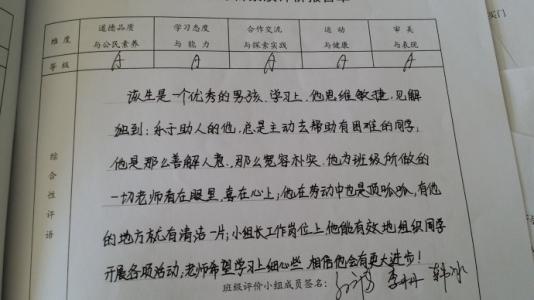 维度 道德品质与公民素养 学习态度与能力 合作交流与探索实践 运动与健康 审美与表现
等级 A A A A A
综合性评语
该生是一个优秀的男孩，学习上，他思维敏捷，见解
独到；乐于助人的他，总是主动去帮助有困难的同学，
他是那么善解人意，那么宽容朴实，他为班级所做的
一切老师看在眼里，喜在心上；他在劳动中也是顶呱呱，有他
的地方就有清洁一片；小组长工作岗位上他能有效地组织同学
开展各项活动，老师希望学习上细心些，相信他会有更大进步！
班级评价小组成员签名：